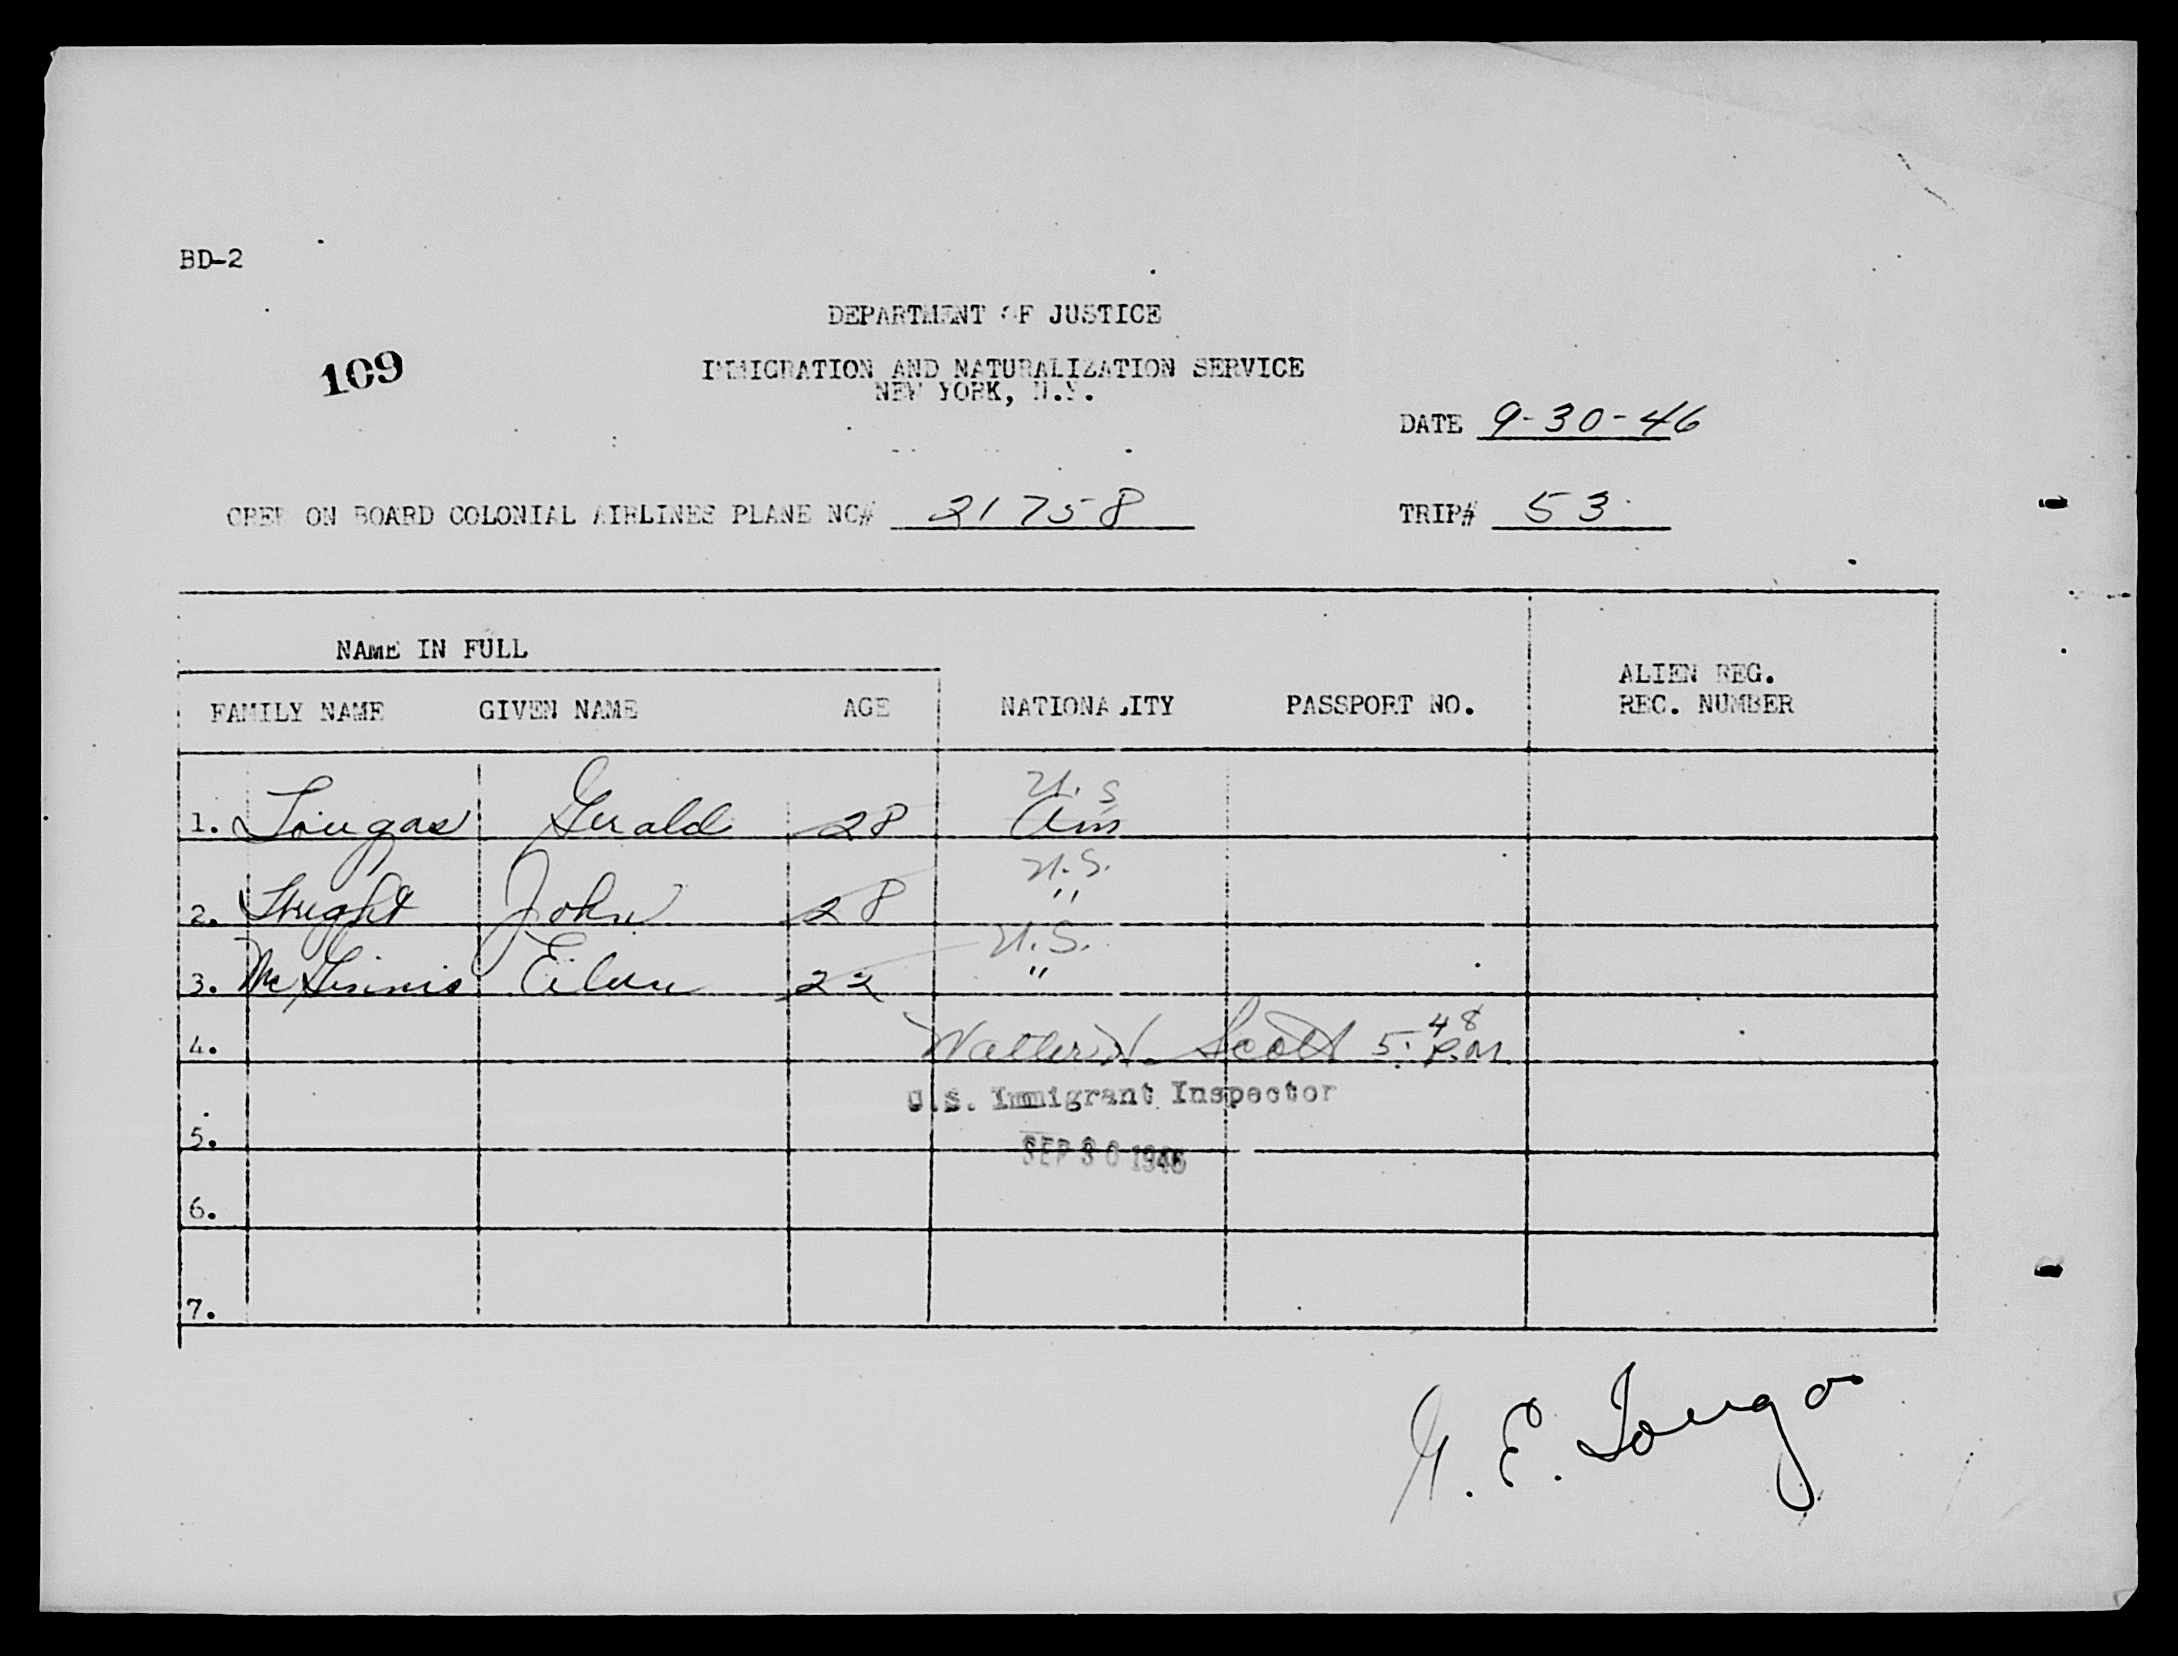 BD-2
109
DEPARTMENT OF JUSTICE
IMMIGRATION AND NATURALIZATION SERVICE
NEW YORK, N.Y.
DATE 9-30-46
CREW ON BOARD COLONIAL AIRLINES PLANE NC# 21758 TRIP# 53
NAME IN FULL
FAMILY NAME GIVEN NAME AGE NATIONALITY PASSPORT NO. ALIEN REG. REC. NUMBER
U.S
1. Gerald 28 Am
U.S.
2. John 28 "
U.S.
3. McGinnis Eileen 22 "
4. Walter H. Scott 5:48 P.M.
U.S. Immigrant Inspector
5. SEP 30 1946
6.
7.
G. E.